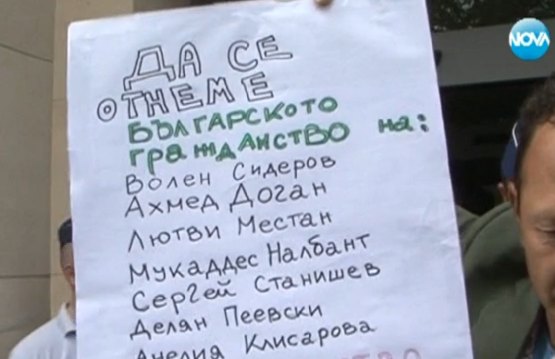 NOVA
ДА СЕ
ОТНЕМЕ
БЪЛГАРСКОТО
гражданство на:
Волен Сидеров
Ахмед Доган
Лютви Местан
Мукаддес Налбант
Сергей Станишев
Делян Пеевски
Анелия Клисарова